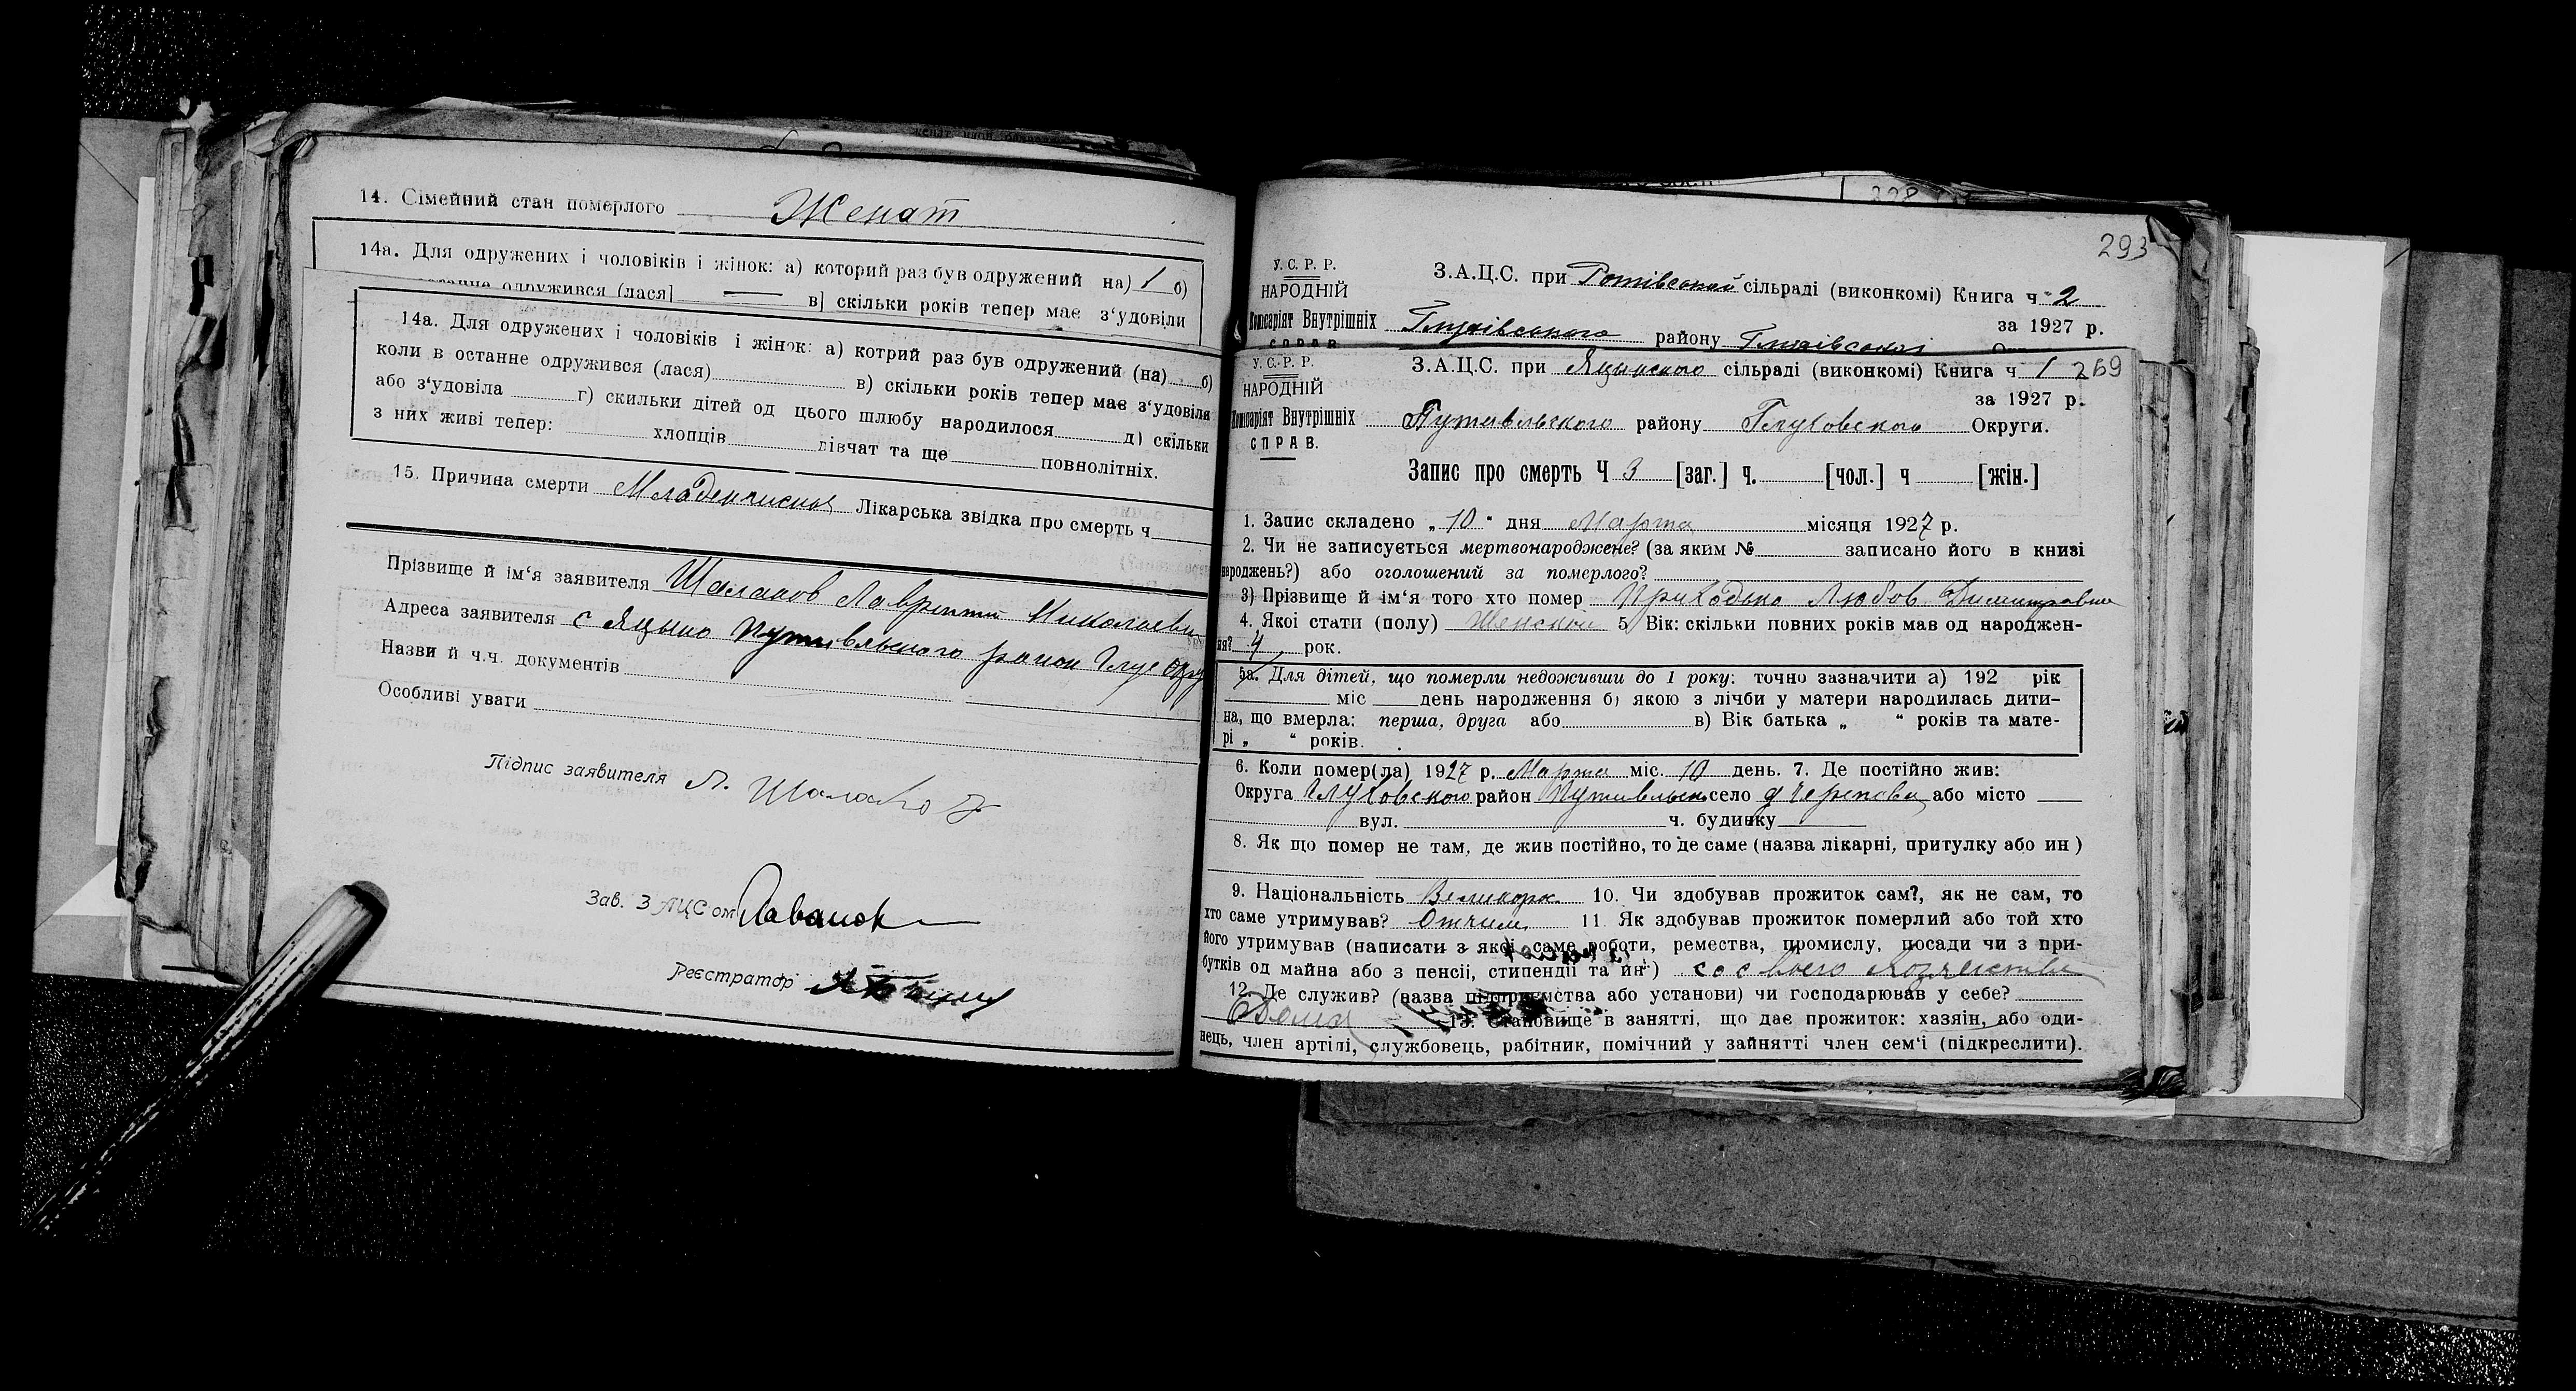 14. Сімейний стан померлого Женат
14а. Для одружених і чоловіків і жінок: а) которий раз був одружений на) 1 б)
останне одружився (лася] — в] скільки років тепер має з‘удовіли
14а. Для одружених і чоловіків і жінок: а) котрий раз був одружений (на) б)
коли в останне одружився (лася) в) скільки років тепер має з‘удовіли
або з‘удовіла г) скильки дітей од цього шлюбу народилося д) скільки
з них живі тепер: хлопців дівчат та ще повнолітніх.
15. Причина смерти Лікарська звідка про смерть ч
Прізвище й ім‘я заявителя Шалапов Лаврентий Николаеви
Адреса заявителя с Яцыно Путивльского район Глух Окру
Назви й ч.ч. документів
Особливі уваги
Підпис заявителя Л.
Зав. ЗАЦСом
Реєстратор
328
293
У. С. Р. Р.
НАРОДНІЙ
Комісаріят Внутрішніх
СПРАВ
З.А.Ц.С. при сільраді (виконкомі) Книга ч 2
за 1927 р.
Глухівського району Глухівської
У. С. Р. Р.
НАРОДНІЙ
Комісаріят Внутрішніх
СПРАВ.
З.А.Ц.С. при Яцынского сільраді (виконкомі) Книга ч 1 269
за 1927 р.
Путивльского району Глуховского Округи.
Запис про смерть Ч 3 [заг.] ч. [чол.] ч [жін.]
1. Запис складено „ 10 “ дня Марта місяця 1927 р.
2. Чи не записується мертвонароджене? (за яким № записано його в книзі
народжень?) або оголошений за померлого?
3) Прізвище й ім‘я того хто помер Приходько Любов Димитровна
4. Якоі стати (полу) Женской 5) Вік: скільки повних років мав од народжен-
ня? 4 рок.
5а. Для дітей, що померли недоживши до 1 року: точно зазначити а) 192 рік
міс день народження б) якою з лічби у матери народилась дити-
на, що вмерла: перша, друга або в) Вік батька „ “ років та мате-
рі „ “ років.
6. Коли помер(ла) 1927 р. Марта міс. 10 день. 7. Де постійно жив:
Округа Глуховского район Путивльск село або місто
вул. ч. будинку
8. Як що помер не там, де жив постійно, то де саме (назва лікарні, притулку або ин )
9. Національність Великорос. 10. Чи здобував прожиток сам?, як не сам, то
хто саме утримував? Отчим 11. Як здобував прожиток померлий або той хто
його утримував (написати з якоі саме роботи, ремества, промислу, посади чи з при-
бутків од майна або з пенсіі, стипендіі та ин.) со своего хозяйства
12. Де служив? (назва підприємства або установи) чи господарював у себе?
Дома 13. Становище в занятті, що дає прожиток: хазяін, або оди-
нець, член артілі, службовець, рабітник, помічний у зайнятті член сем‘і (підкреслити).